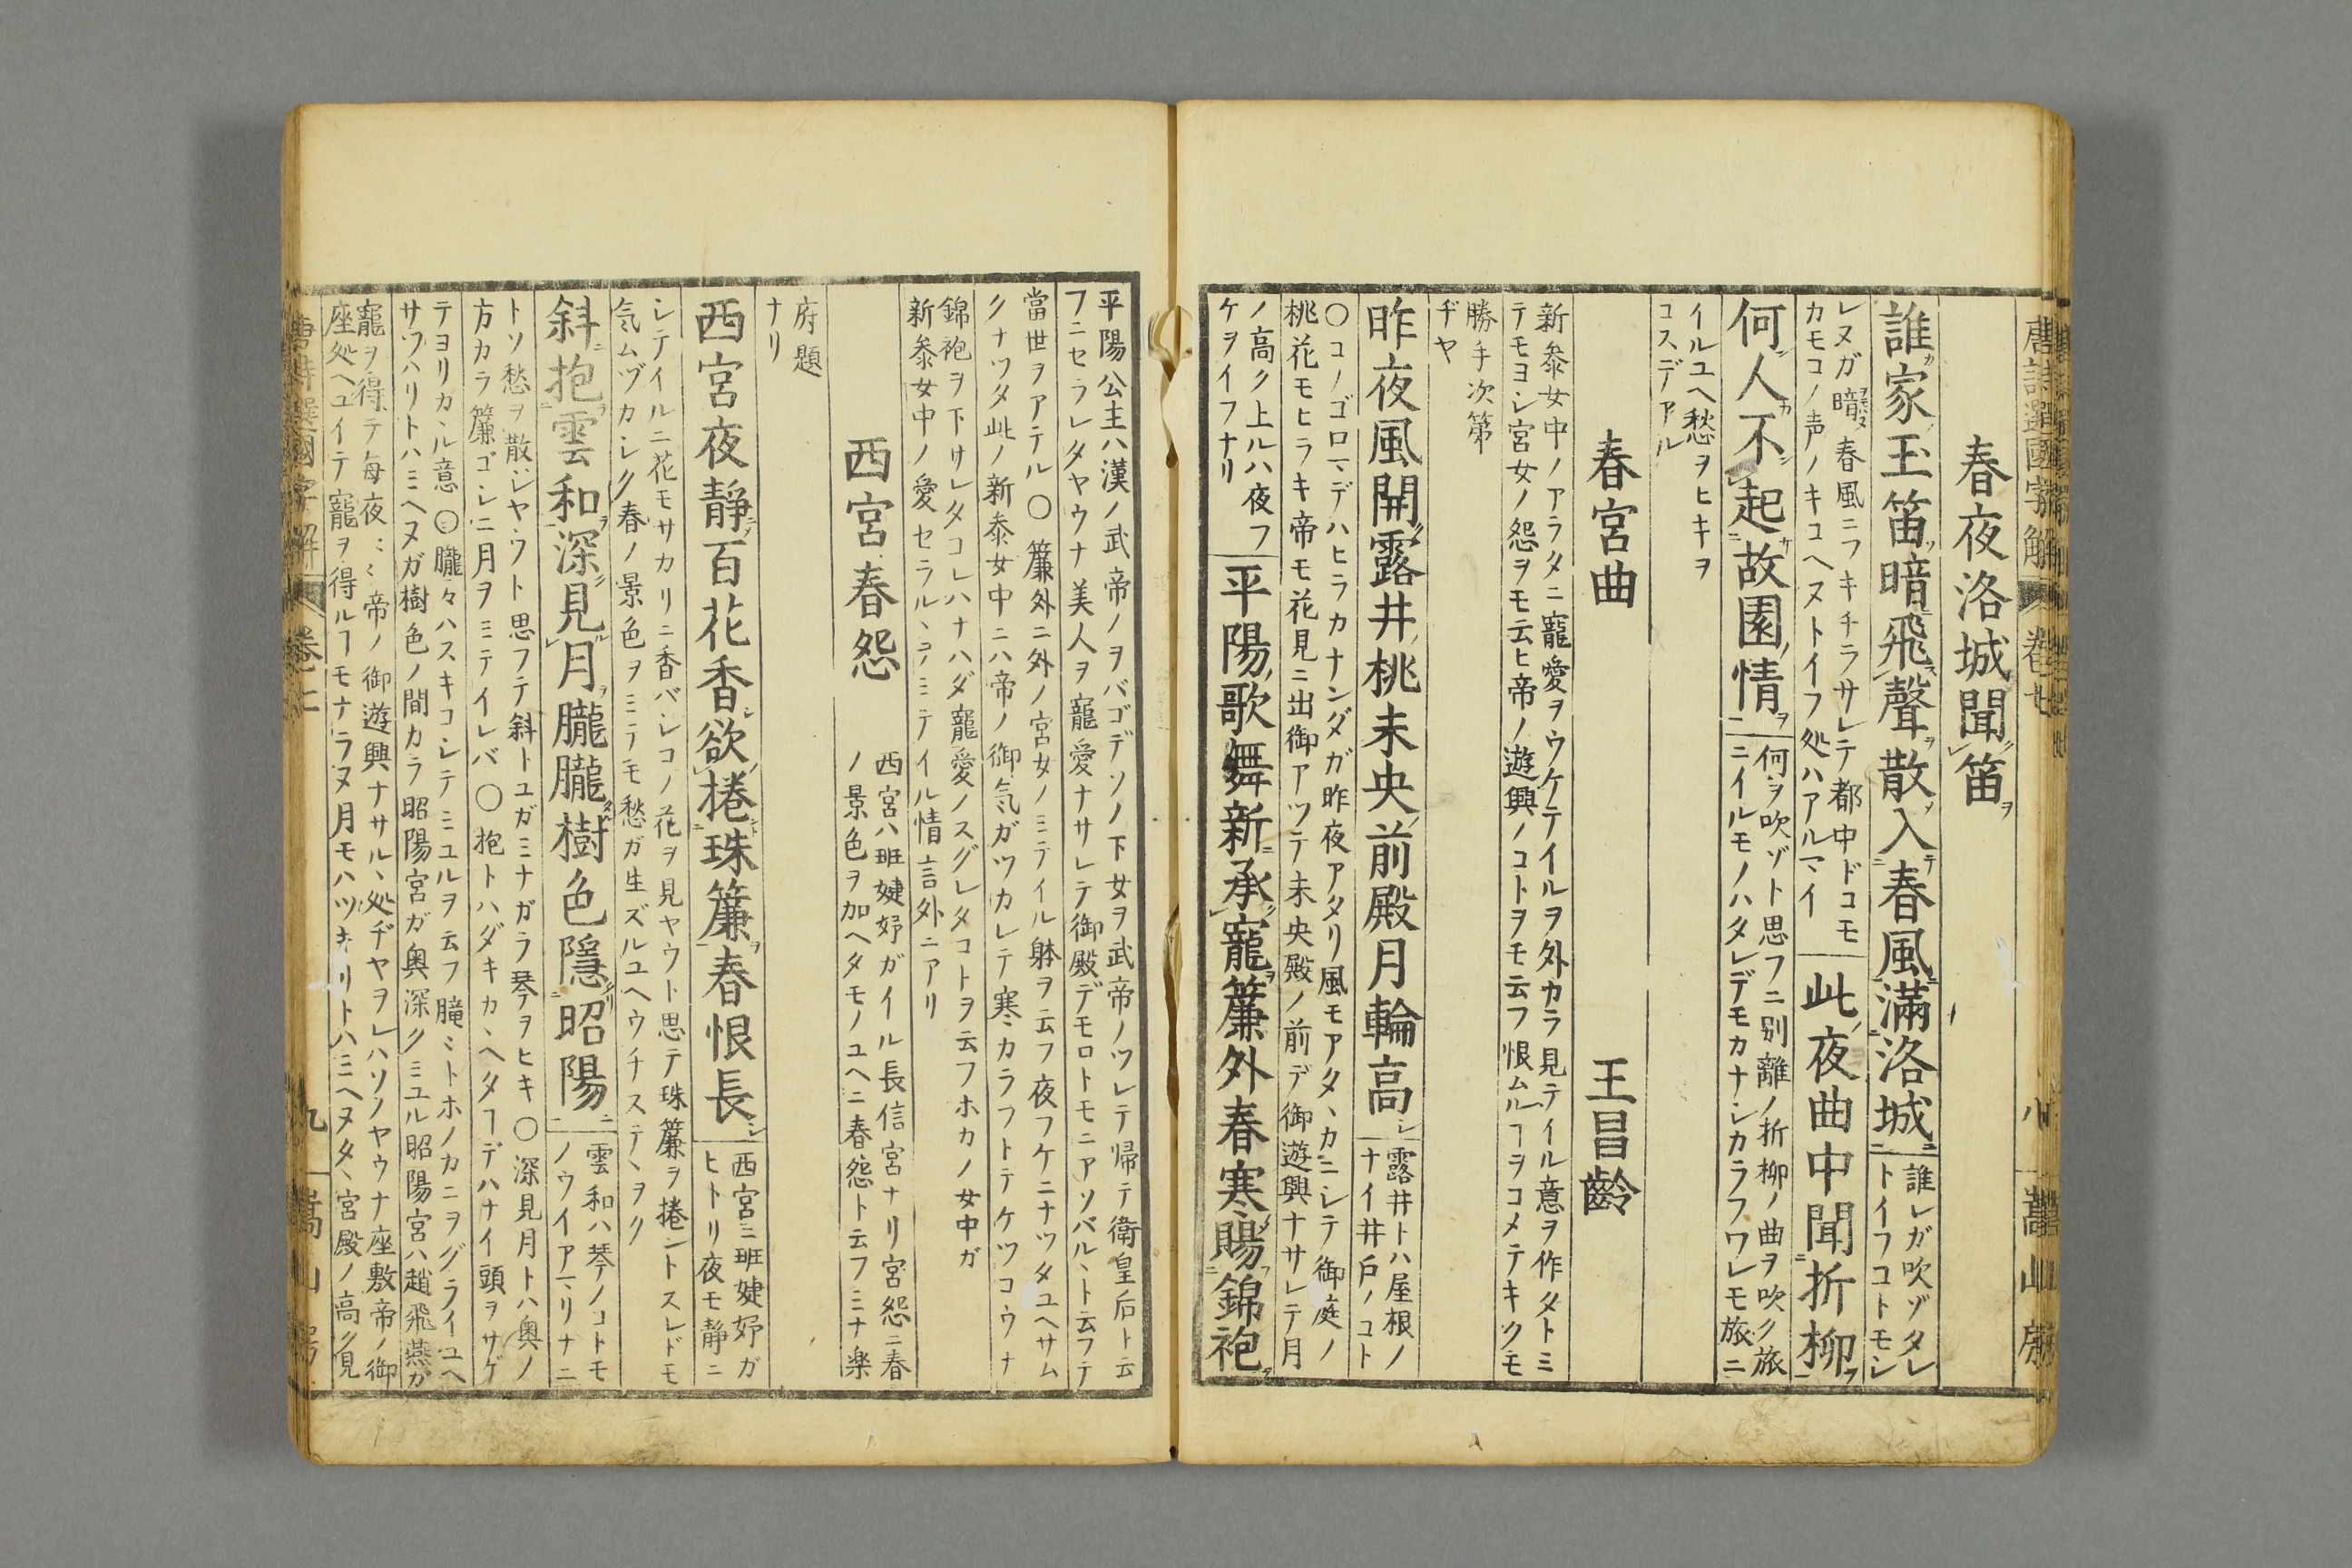 春夜洛城聞笛
誰家玉笛暗飛聲散入春風滿洛城
誰レガ吹ゾタレ
トイフコトモシ
レヌガ暗春風ニフキチラサレテ都中ドコモ
カモコノ声ノキコヘヌトイフ処ハアルマイ
此夜曲中聞折柳
何人不起故園情
何ヲ吹ゾト思フニ別離ノ折柳ノ曲ヲ吹ク旅
ニイルモノハタレデモカナシカラフワレモ旅ニ
イルユヘ愁ヲヒキヲ
コスデアル
春宮曲 王昌齡
新参女中ノアラタニ寵愛ヲウケテイルヲ外カラ見テイル意ヲ作タトミ
テモヨシ宮女ノ怨ヲモ云ヒ帝ノ遊興ノコトヲモ云フ恨ムルヿヲコメテキクモ
勝手次第
ヂヤ
昨夜風開露井桃未央前殿月輪高
露井トハ屋根ノ
ナイ井戸ノコト
〇コノゴロマデハヒラカナンダガ昨夜アタリ風モアタヽカニシテ御庭ノ
桃花モヒラキ帝モ花見ニ出御アツテ未央殿ノ前デ御遊興ナサレテ月
ノ高ク上ルハ夜フ
ケヲイフナリ
平陽歌舞新承寵簾外春寒賜錦袍
平陽公主ハ漢ノ武帝ノヲバゴデソノ下女ヲ武帝ノツレテ帰テ衛皇后ト云
フニセラレタヤウナ美人ヲ寵愛ナサレテ御殿デモロトモニアソバルヽト云フテ
當世ヲアテル〇簾外ニ外ノ宮女ノミテイル躰ヲ云フ夜フケニナツタユヘサム
クナツタ此ノ新参女中ニハ帝ノ御気ガツカレテ寒カラフトテケツコウナ
錦袍ヲ下サレタコレハナハダ寵愛ノスグレタコトヲ云フホカノ女中ガ
新参女中ノ愛セラルヽヲミテイル情言外ニアリ
西宮春怨
西宮ハ班婕妤ガイル長信宮ナリ宮怨ニ春
ノ景色ヲ加ヘタモノユヘニ春怨ト云フミナ楽
府題
ナリ
西宮夜靜百花香欲捲珠簾春恨長
西宮ニ班婕妤ガ
ヒトリ夜モ静ニ
シテイルニ花モサカリニ香バシコノ花ヲ見ヤウト思テ珠簾ヲ捲ントスレドモ
気ムヅカシク春ノ景色ヲミテモ愁ガ生ズルユヘウチステヽヲク
斜抱雲和深見月朧朧樹色隱昭陽
雲和ハ琴ノコトモ
ノウイアマリナニ
トソ愁ヲ散ジヤウト思フテ斜トユガミナガラ琴ヲヒキ〇深見月トハ奥ノ
方カラ簾ゴシニ月ヲミテイレバ〇抱トハダキカヽヘタヿデハナイ頭ヲサゲ
テヨリカヽル意〇朧々ハスキコシテミユルヲ云フ朧ミトホノカニヲグライユヘ
サワハリトハミヘヌガ樹色ノ間カラ昭陽宮ガ奥深クミユル昭陽宮ハ趙飛燕ガ
寵ヲ得テ毎夜〻帝ノ御遊興ナサルヽ処ヂヤヲレハソノヤウナ座敷帝ノ御
座処ヘユイテ寵ヲ得ルヿモナラヌ月モハツキリトハミヘヌタヽ宮殿ノ高ク見
唐詩選國字解
九